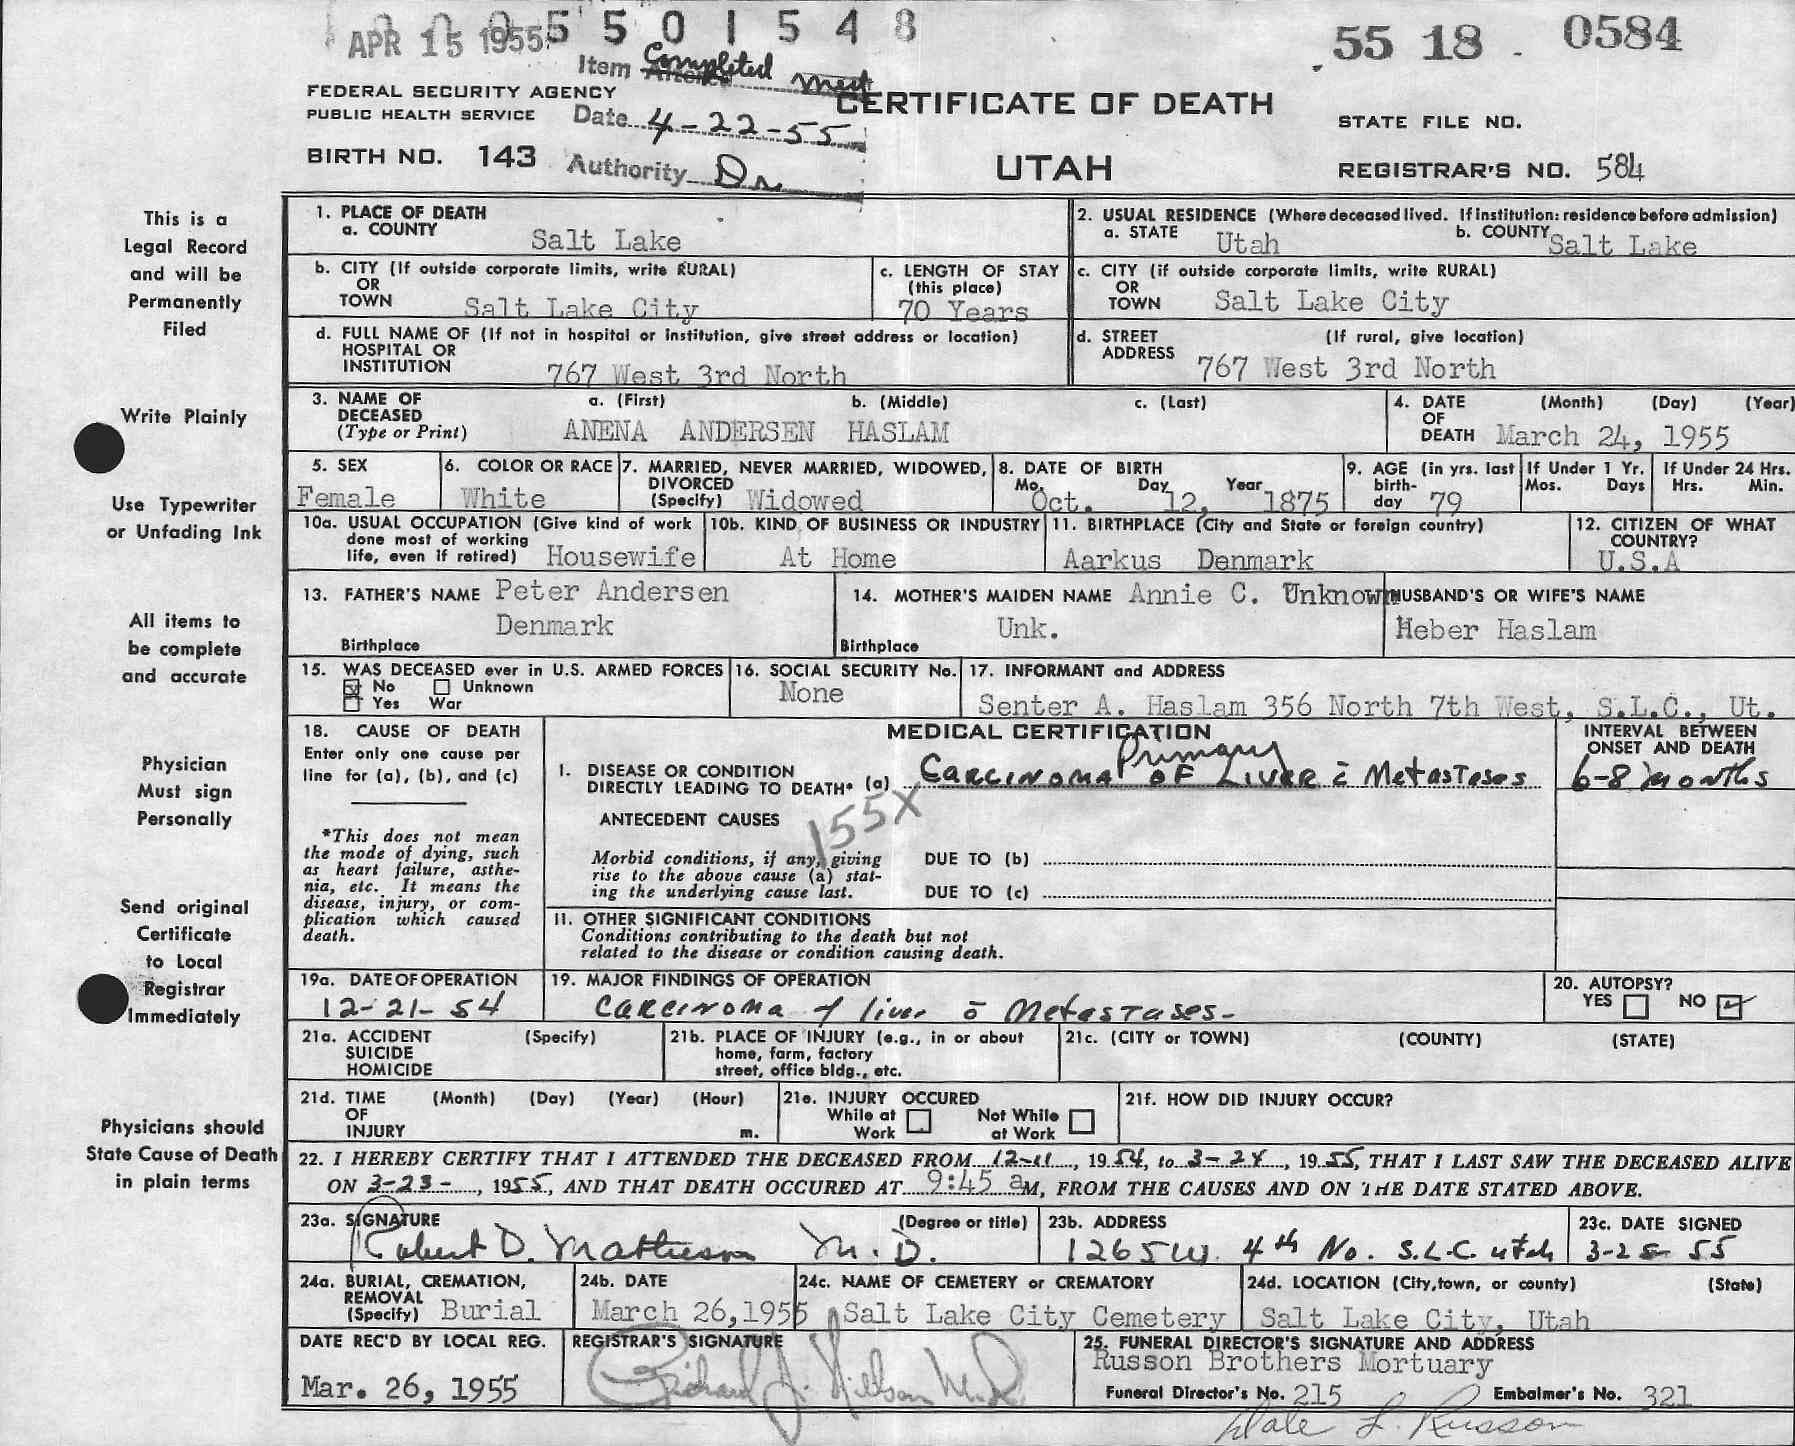 APR 15 1955 5 5 0 1 5 4 8
55 18 . 0584
Item Completed
FEDERAL SECURITY AGENCY
PUBLIC HEALTH SERVICE
Date 4-22-55
CERTIFICATE OF DEATH
STATE FILE NO.
BIRTH NO. 143
Authority Dr
UTAH
REGISTRAR'S NO. 584
This is a
Legal Record
and will be
Permanently
Filed
Write Plainly
Use Typewriter
or Unfading Ink
All items to
be complete
and accurate
Physician
Must sign
Personally
Send original
Certificate
to Local
Registrar
Immediately
Physicians should
State Cause of Death
in plain terms
1. PLACE OF DEATH
a. COUNTY
Salt Lake
2. USUAL RESIDENCE (Where deceased lived. If institution: residence before admission)
a. STATE Utah b. COUNTY Salt Lake
b. CITY (If outside corporate limits, write RURAL)
OR
TOWN Salt Lake City
c. LENGTH OF STAY
(this place)
70 Years
c. CITY (if outside corporate limits, write RURAL)
OR
TOWN Salt Lake City
d. FULL NAME OF (If not in hospital or institution, give street address or location)
HOSPITAL OR
INSTITUTION 767 West 3rd North
d. STREET (If rural, give location)
ADDRESS 767 West 3rd North
3. NAME OF a. (First) b. (Middle) c. (Last)
DECEASED
(Type or Print) ANENA ANDERSEN HASLAM
4. DATE (Month) (Day) (Year)
OF
DEATH March 24, 1955
5. SEX
Female
6. COLOR OR RACE
White
7. MARRIED, NEVER MARRIED, WIDOWED,
DIVORCED
(Specify) Widowed
8. DATE OF BIRTH
Mo. Day Year
Oct. 12, 1875
9. AGE (in yrs. last
birth-
day 79
If Under 1 Yr.
Mos. Days
If Under 24 Hrs.
Hrs. Min.
10a. USUAL OCCUPATION (Give kind of work
done most of working
life, even if retired) Housewife
10b. KIND OF BUSINESS OR INDUSTRY
At Home
11. BIRTHPLACE (City and State or foreign country)
Aarkus Denmark
12. CITIZEN OF WHAT
COUNTRY?
U.S.A
13. FATHER'S NAME Peter Andersen
Denmark
Birthplace
14. MOTHER'S MAIDEN NAME Annie C. Unknown
Unk.
Birthplace
HUSBAND'S OR WIFE'S NAME
Heber Haslam
15. WAS DECEASED ever in U.S. ARMED FORCES
No Unknown
Yes War
16. SOCIAL SECURITY No.
None
17. INFORMANT and ADDRESS
Senter A. Haslam 356 North 7th West, S.L.C., Ut.
18. CAUSE OF DEATH
Enter only one cause per
line for (a), (b), and (c)
*This does not mean
the mode of dying, such
as heart failure, asthe-
nia, etc. It means the
disease, injury, or com-
plication which caused
death.
MEDICAL CERTIFICATION
INTERVAL BETWEEN
ONSET AND DEATH
Primary
I. DISEASE OR CONDITION
DIRECTLY LEADING TO DEATH* (a) Carcinoma of Liver c̄ Metastases
6-8 months
155X
ANTECEDENT CAUSES
Morbid conditions, if any, giving
rise to the above cause (a) stat-
ing the underlying cause last.
DUE TO (b)
DUE TO (c)
II. OTHER SIGNIFICANT CONDITIONS
Conditions contributing to the death but not
related to the disease or condition causing death.
19a. DATE OF OPERATION
12-21-54
19. MAJOR FINDINGS OF OPERATION
Carcinoma of liver c̄ Metastases-
20. AUTOPSY?
YES NO
21a. ACCIDENT (Specify)
SUICIDE
HOMICIDE
21b. PLACE OF INJURY (e.g., in or about
home, farm, factory
street, office bldg., etc.
21c. (CITY or TOWN) (COUNTY) (STATE)
21d. TIME (Month) (Day) (Year) (Hour)
OF
INJURY m.
21e. INJURY OCCURED
While at Not While
Work at Work
21f. HOW DID INJURY OCCUR?
22. I HEREBY CERTIFY THAT I ATTENDED THE DECEASED FROM 12-11, 1954, to 3-24, 1955, THAT I LAST SAW THE DECEASED ALIVE
ON 3-23-, 1955, AND THAT DEATH OCCURED AT 9:45 aM, FROM THE CAUSES AND ON THE DATE STATED ABOVE.
23a. SIGNATURE (Degree or title)
Robert D. Matheson M.D.
23b. ADDRESS
1265 W. 4th No. S.L.C. Utah
23c. DATE SIGNED
3-25-55
24a. BURIAL, CREMATION,
REMOVAL
(Specify) Burial
24b. DATE
March 26,1955
24c. NAME OF CEMETERY or CREMATORY
Salt Lake City Cemetery
24d. LOCATION (City,town, or county) (State)
Salt Lake City, Utah
DATE REC'D BY LOCAL REG.
Mar. 26, 1955
REGISTRAR'S SIGNATURE
Richard J. Nelson M.D.
25. FUNERAL DIRECTOR'S SIGNATURE AND ADDRESS
Russon Brothers Mortuary
Funeral Director's No. 215 Embalmer's No. 321
Dale L. Russon